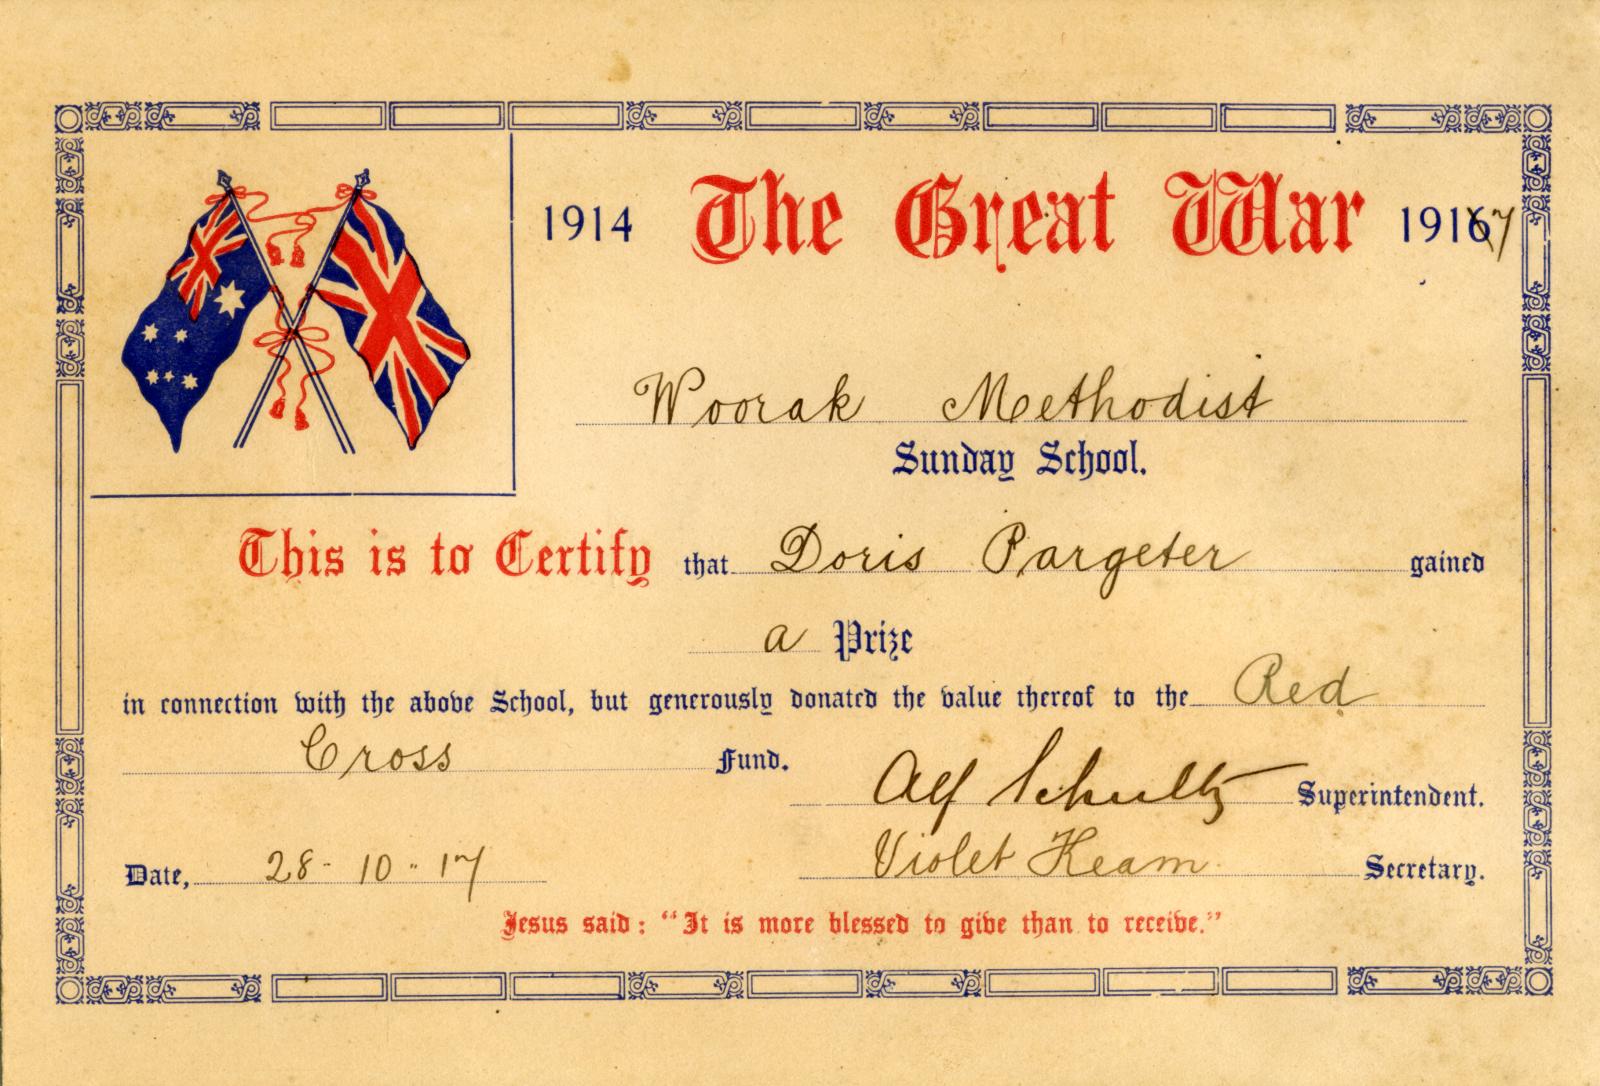 1914 The Great War 19167
Woorak Methodist
Sunday School.
This is to Certify that Doris Pargeter gained
a Prize
in connection with the above School, but generously donated the value thereof to the Red
Cross Fund.
Alf Schultz Superintendent.
Violet Keam Secretary.
Date, 28-10-17
Jesus said: "It is more blessed to give than to receive."